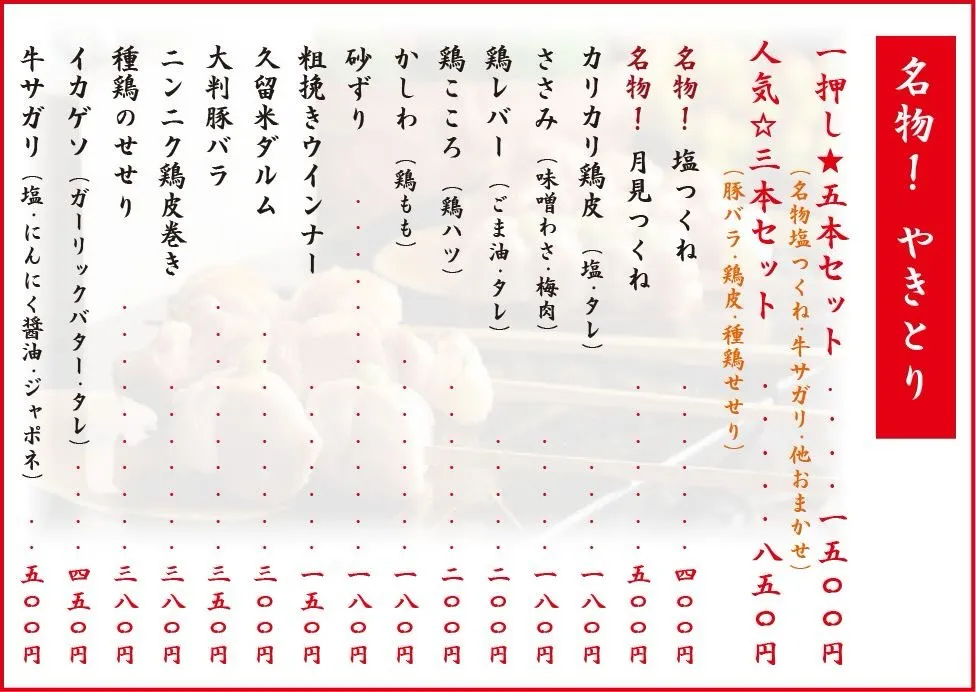 名物！やきとり
一押し★五本セット・・・・・・一五〇〇円
（名物塩つくね・牛サガリ・他おまかせ）
人気☆三本セット・・・・・・八五〇円
（豚バラ・鶏皮・種鶏せせり）
名物！塩つくね・・・・・・・・四〇〇円
名物！月見つくね・・・・・・・五〇〇円
カリカリ鶏皮（塩・タレ）・・・・一八〇円
ささみ（味噌わさ・梅肉）・・・・・一八〇円
鶏レバー（ごま油・タレ）・・・・・二〇〇円
鶏こころ（鶏ハツ）・・・・・・・二〇〇円
かしわ（鶏もも）・・・・・・・・一八〇円
砂ずり・・・・・・・・・・・・・・一八〇円
粗挽きウインナー・・・・・・・・・一五〇円
久留米ダルム・・・・・・・・・三〇〇円
大判豚バラ・・・・・・・・・・三五〇円
ニンニク鶏皮巻き・・・・・・・三八〇円
種鶏のせせり・・・・・・・・・・三八〇円
イカゲソ（ガーリックバター・タレ）・・・・四五〇円
牛サガリ（塩・にんにく醤油・ジャポネ）・・五〇〇円